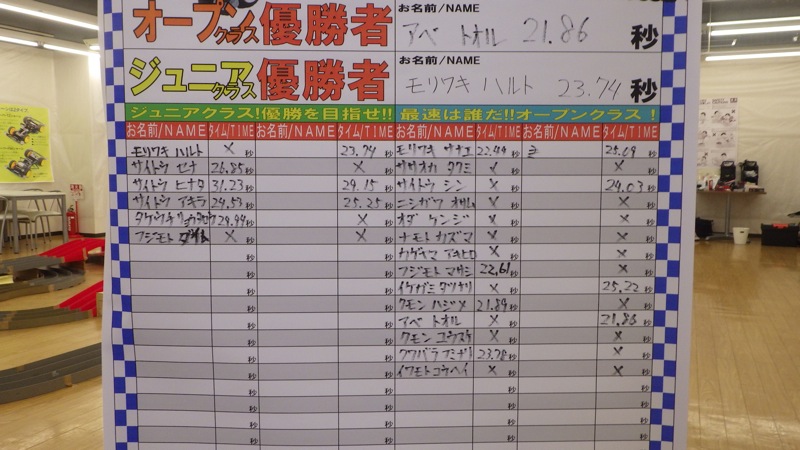 オープンクラス優勝者 お名前/NAME アベ トオル 21.86 秒
ジュニアクラス優勝者 お名前/NAME モリワキ ハルト 23.74 秒
ジュニアクラス!優勝を目指せ!! 最速は誰だ!!オープンクラス!
お名前/NAME タイム/TIME お名前/NAME タイム/TIME お名前/NAME タイム/TIME お名前/NAME タイム/TIME
モリワキ ハルト × 秒 23.74 秒 モリワキ サナエ 22.44 秒 25.69 秒
サイトウ セナ 26.85 秒 × 秒 ササオカ タクミ × 秒 × 秒
サイトウ ヒナタ 31.23 秒 29.15 秒 サイトウ シン × 秒 24.03 秒
サイトウ アキラ 24.53 秒 25.25 秒 ニシガワ オサム × 秒 × 秒
タケウチ 29.94 秒 × 秒 オダ ケンジ × 秒 × 秒
フジモト × 秒 × 秒 ナモト カズマ × 秒 × 秒
秒 秒 カゲヤマ アキヒロ × 秒 × 秒
秒 秒 フジモト マサシ 22.61 秒 × 秒
秒 秒 イケガミ タツナリ × 秒 25.22 秒
秒 秒 クモン ハジメ 21.89 秒 × 秒
秒 秒 アベ トオル × 秒 21.86 秒
秒 秒 クモン コウスケ × 秒 × 秒
秒 秒 クワバラ フミナリ 23.78 秒 × 秒
秒 秒 イワモト コウヘイ × 秒 × 秒
秒 秒 秒 秒
秒 秒 秒 秒
秒 秒 秒 秒
秒 秒 秒 秒